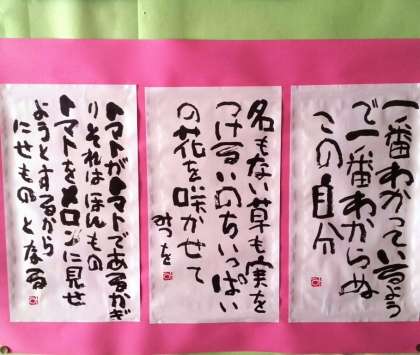 一番わかっているよう
で一番わからぬ
この自分
名もない草も実を
つけるいのちいっぱい
の花を咲かせて
みつを
トマトがトマトであるかぎ
りそれはほんもの
トマトをメロンに見せ
ようとするから
にせものとなる